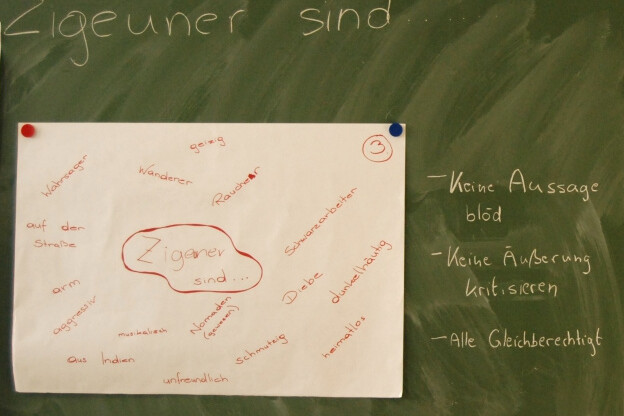 Zigeuner sind.......
3
geizig
Wahrsager
Wanderer
Raucher
auf der
Straße
Schwarzarbeiter
Zigeuner
sind...
dunkelhäutig
Diebe
arm
aggressiv
musikalisch
Nomaden
(gewesen)
heimatlos
schmutzig
aus Indien
unfreundlich
- Keine Aussage
blöd
- Keine Äußerung
kritisieren
- Alle Gleichberechtigt